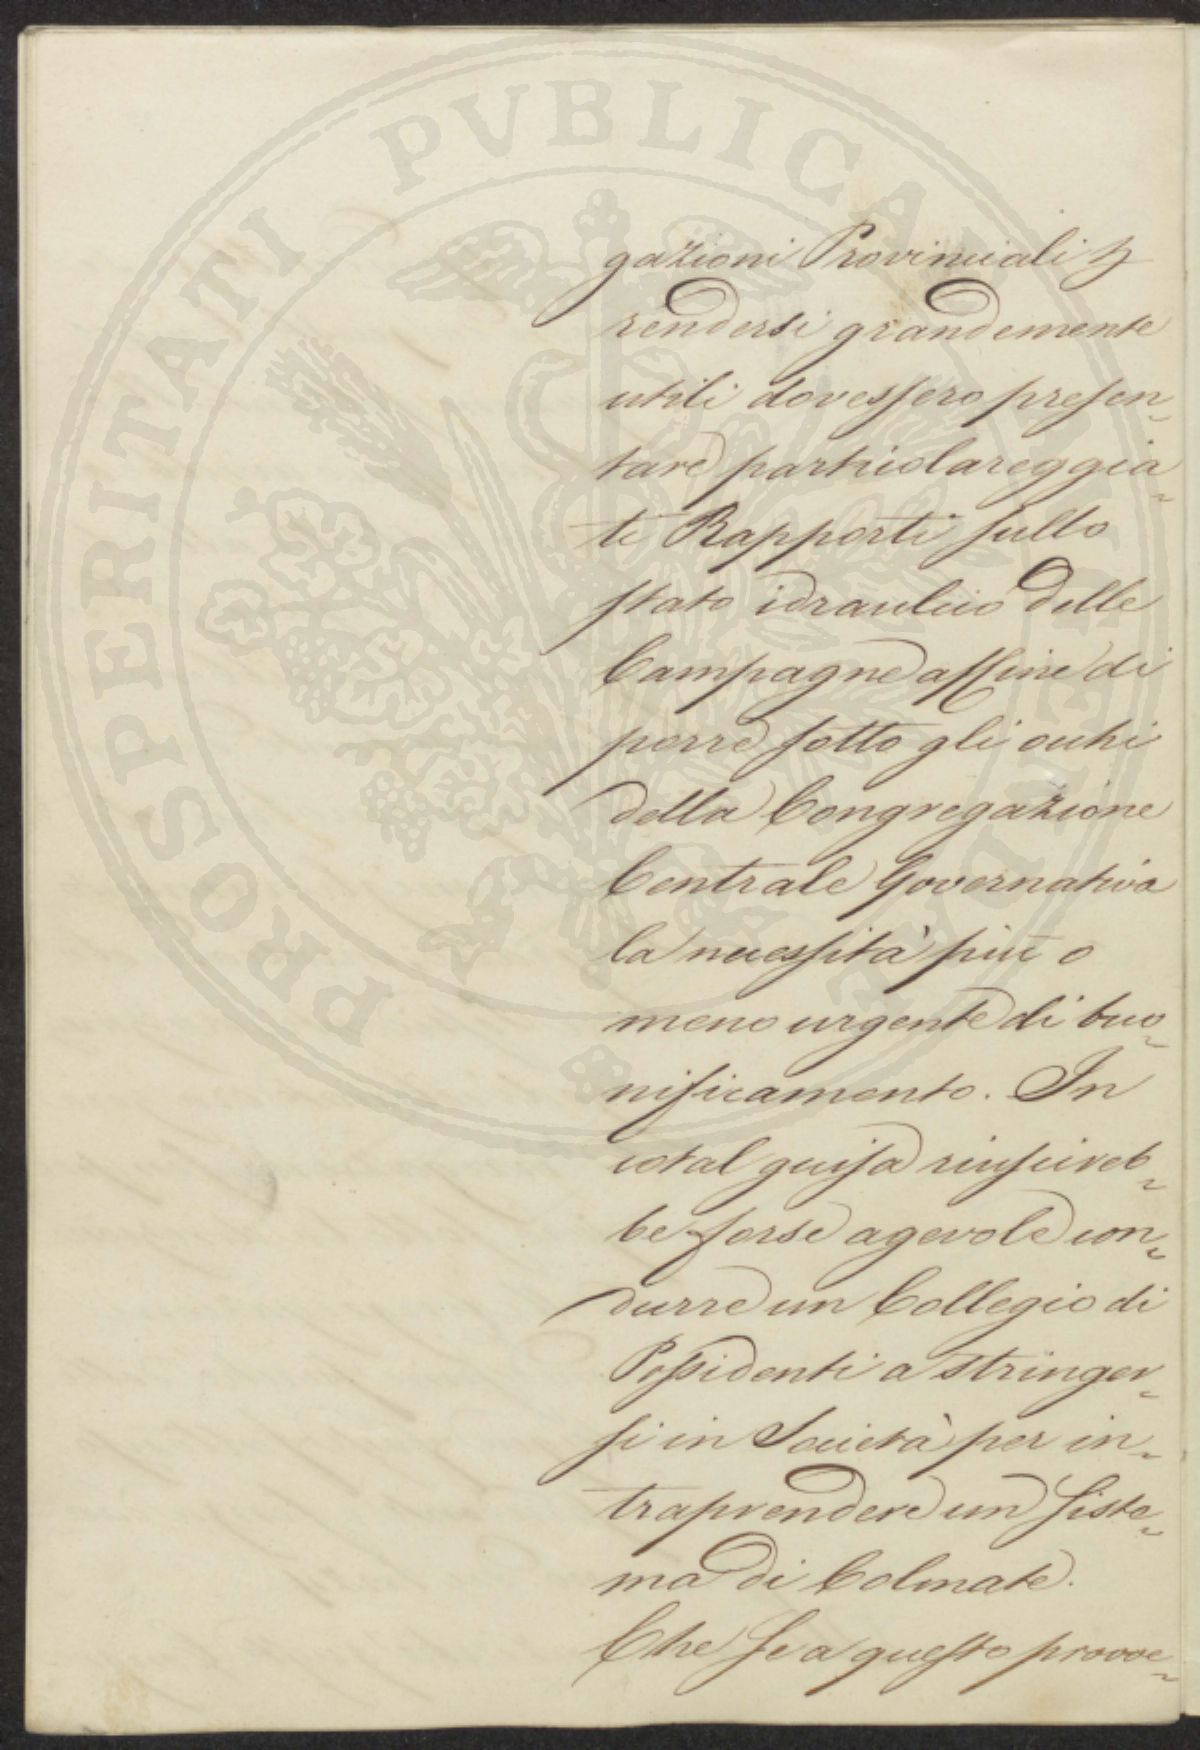 PROSPERITATI PVBLICAE
gazioni Provinciali
rendersi grandemente
utili dovessero presen-
tare particolareggia-
ti Rapporti sullo
stato idraulico delle
Campagne affine di
porre sotto gli occhi
della Congregazione
Centrale Governativa
la necessità più o
meno urgente di buo-
nificamento. In
cotal guisa riuscireb-
be forse agevole con-
durre un Collegio di
Possidenti a stringer-
si in Società per in-
traprendere un siste-
ma di Colmate.
Che se a questo provve-